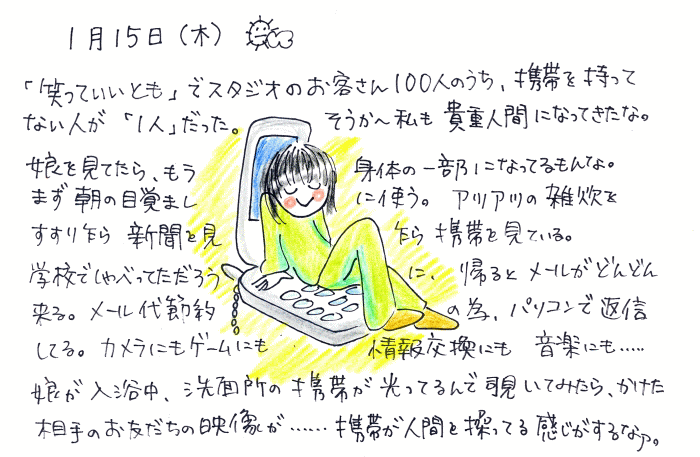 1月15日(木)
「笑っていいとも」でスタジオのお客さん100人のうち、携帯を持って
ない人が「1人」だった。 そうか〜私も貴重人間になってきたな。
娘を見てたら、もう 身体の一部になってるもんな。
まず朝の目覚まし に使う。アツアツの雑炊を
すすり乍ら 新聞を見 乍ら 携帯を見ている。
学校でしゃべってただろう に、帰るとメールがどんどん
来る。メール代節約 の為、パソコンで返信
してる。カメラにもゲームにも 情報交換にも 音楽にも……
娘が入浴中、洗面所の携帯が光ってるんで覗いてみたら、かけた
相手のお友だちの映像が……携帯が人間を操ってる感じがするなァ。